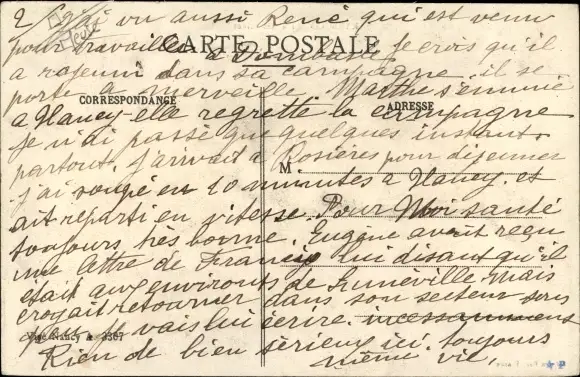 2 J'ai vu aussi René qui est venu
pour travailler à Dombasle je crois qu'il
CARTE POSTALE
a rajeuni dans sa campagne, il se
porte à merveille. Marthe s'ennuie
CORRESPONDANCE
ADRESSE
à Nancy elle regrette la campagne
je n'ai passé que quelques instants
partout, j'arrivai à Rosières pour déjeuner
M
j'ai soupé en 10 minutes à Nancy et
ait reparti en vitesse. Pour Moi santé
toujours très bonne. Eugène avait reçu
une lettre de Francis lui disant qu'il
était aux environs de Lunéville mais
croyait retourner dans son secteur sous
je vais lui écrire incessamment
Nancy 1367
Rien de bien sérieux ici. toujours
même vie.